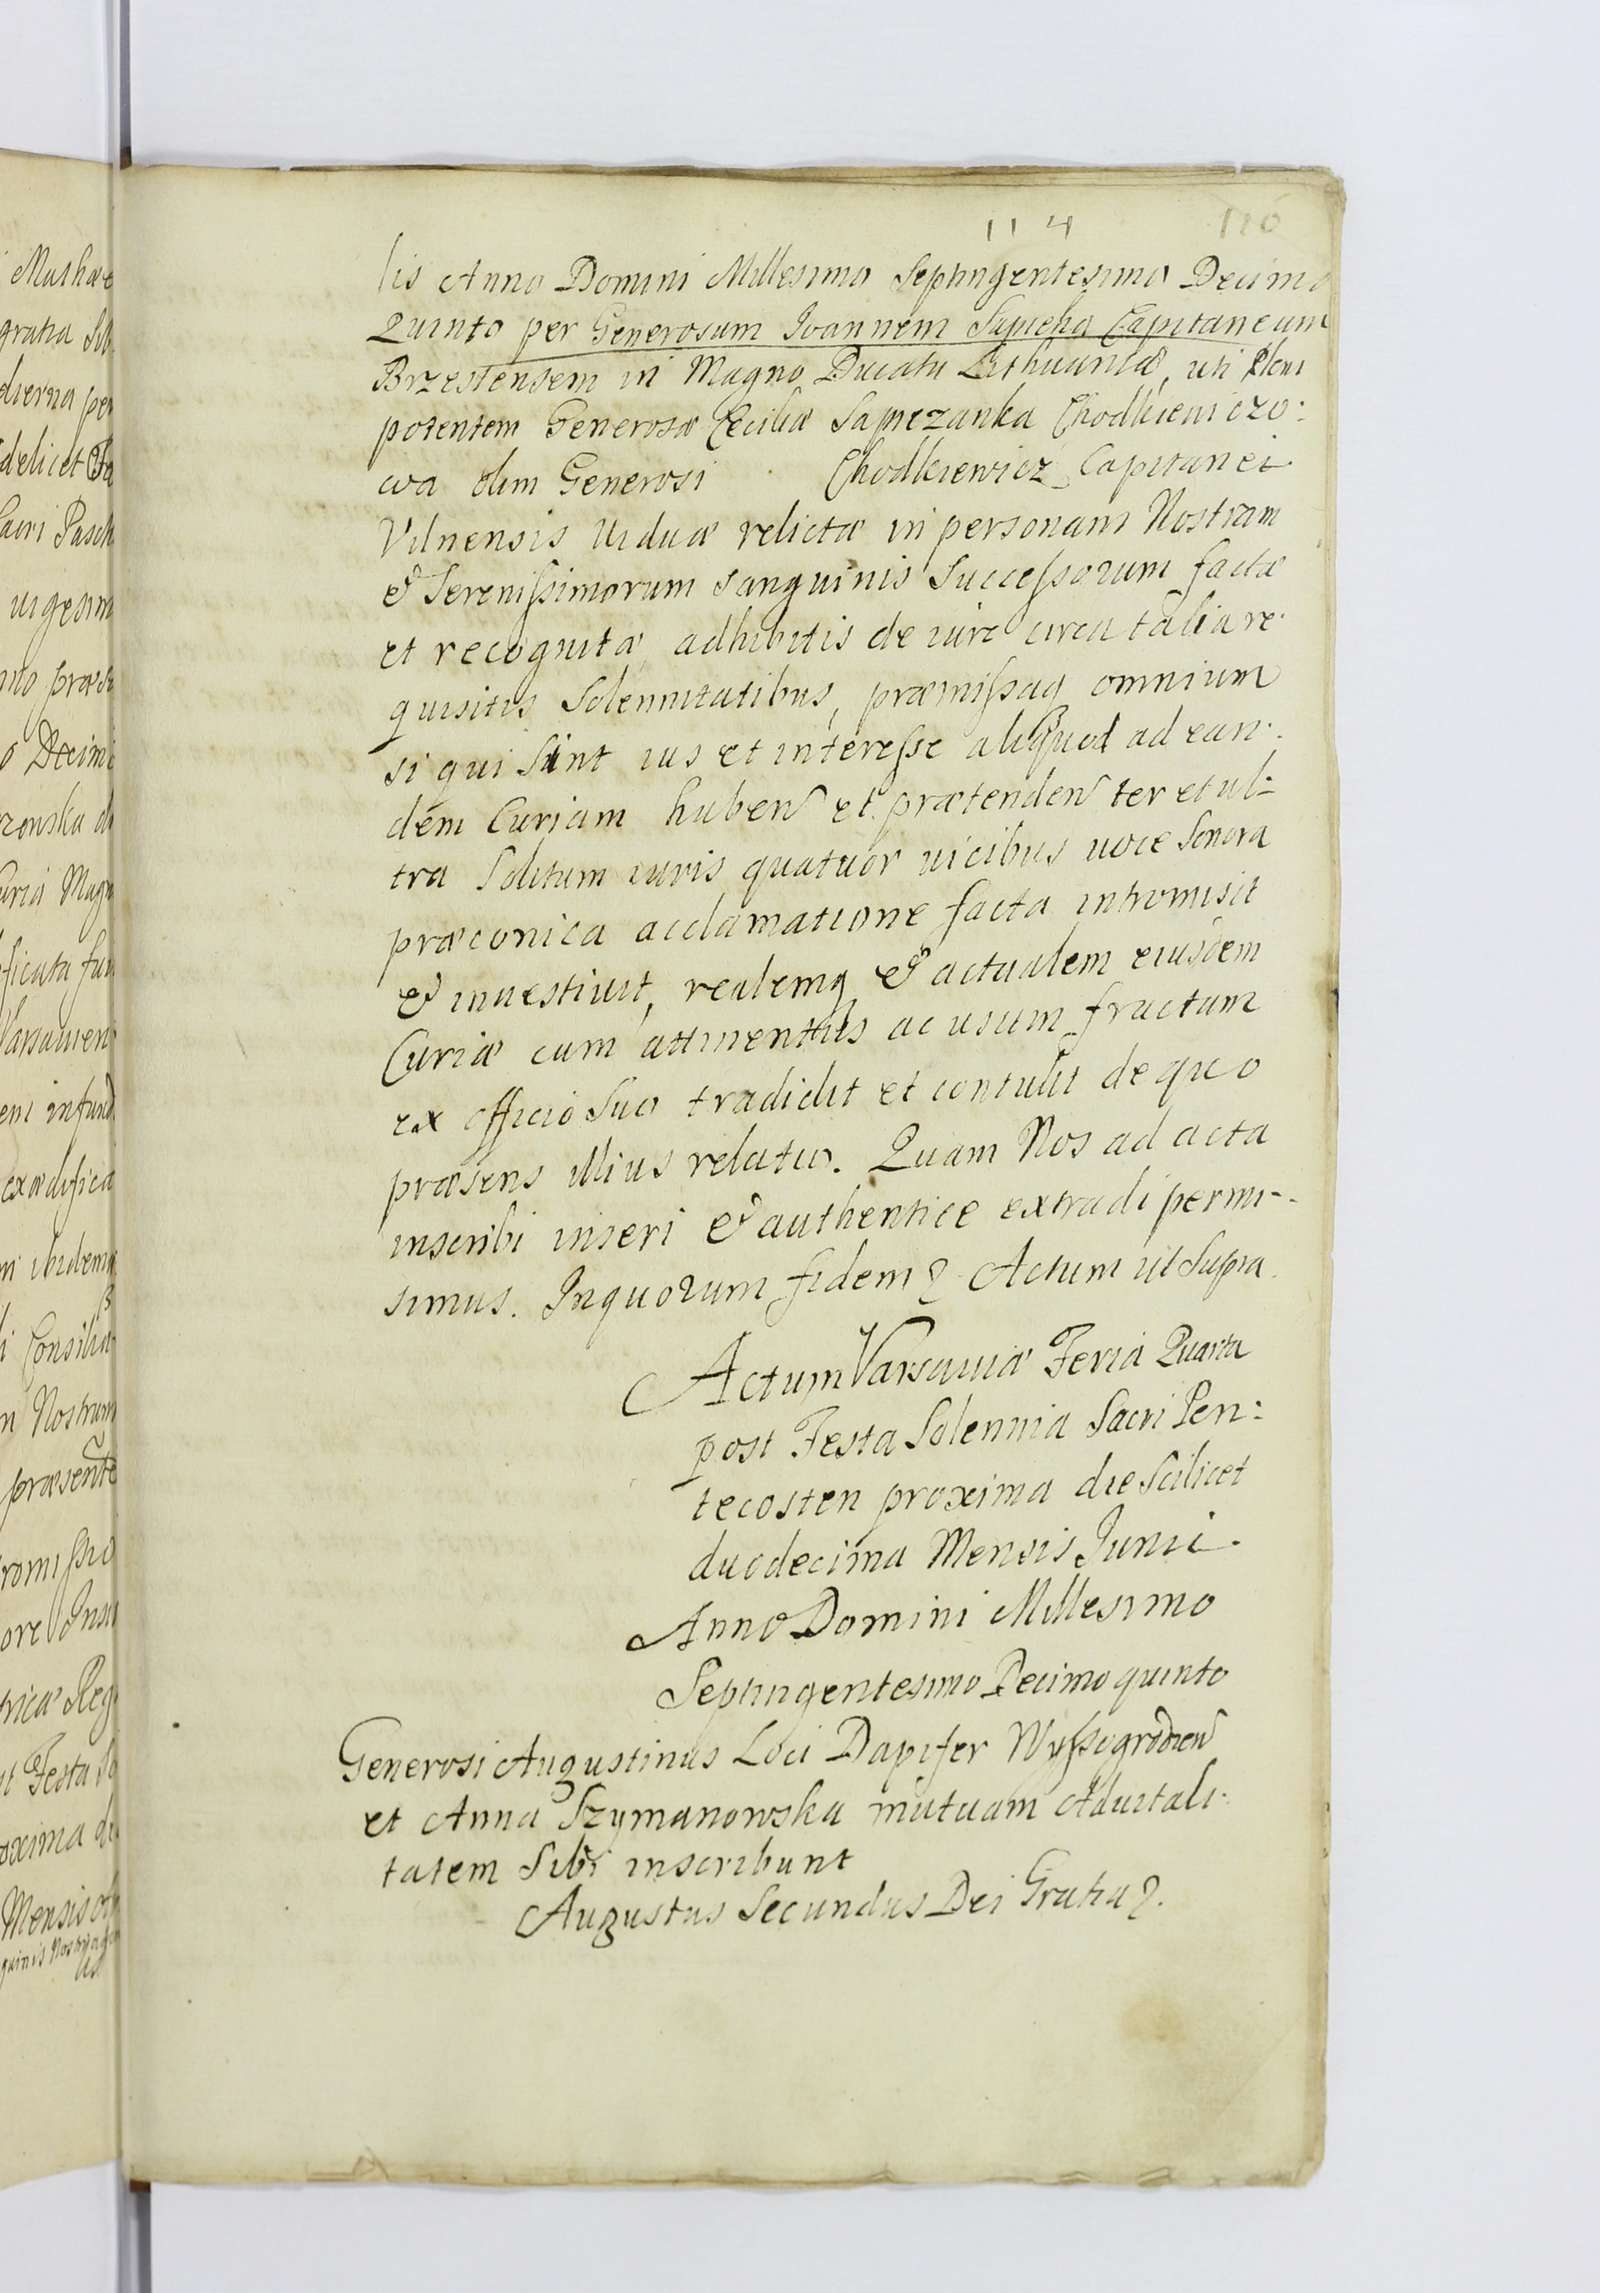 114 116
lis Anno Domini Millesimo Septingentesimo Decimo
Quinto per Generosum Ioannem Sapieha Capitaneum
Brzestensem in Magno Ducatu Lithuaniæ, uti Pleni
potentem Generosæ Ceciliæ Sapiezanka Chodkiewiczo:
wa olim Generosi Chodkiewicz Capitanei
Vilnensis Viduæ relictæ in personam Nostram
& Serenissimorum sanguinis Successorum factæ
et recognitæ, adhibitis de iure circa talia re-
quisitis Solennitatibus, præmissaq omnium
si qui sint ius et interesse aliquod ad ean-
dem Curiam haben et prætenden ter et ul-
tra Solitum iuris quatuor vicibus voce Sonora
præconica acclamatione facta intromisit
& investivit, realemq & actualem eiusdem
Curiæ cum attinentiis ac usum fructum
ex officio Suo tradidit et contulit de quo
præsens illius relatio. Quam Nos ad acta
inscribi inseri & authentice extradi permi-
simus. In quorum fidem Actum ut Supra
Actum Varsaviæ Feria Quarta
post Festa Solennia Sacri Pen:
tecosten proxima die Scilicet
duodecima Mensis Junii
Anno Domini Millesimo
Septingentesimo Decimo quinto
Generosi Augustinus Loci Dapifer Wyssogroden
et Anna Szymanowska mutuam Advitali-
tatem Sibi inscribunt
Augustus Secundus Dei Gratia